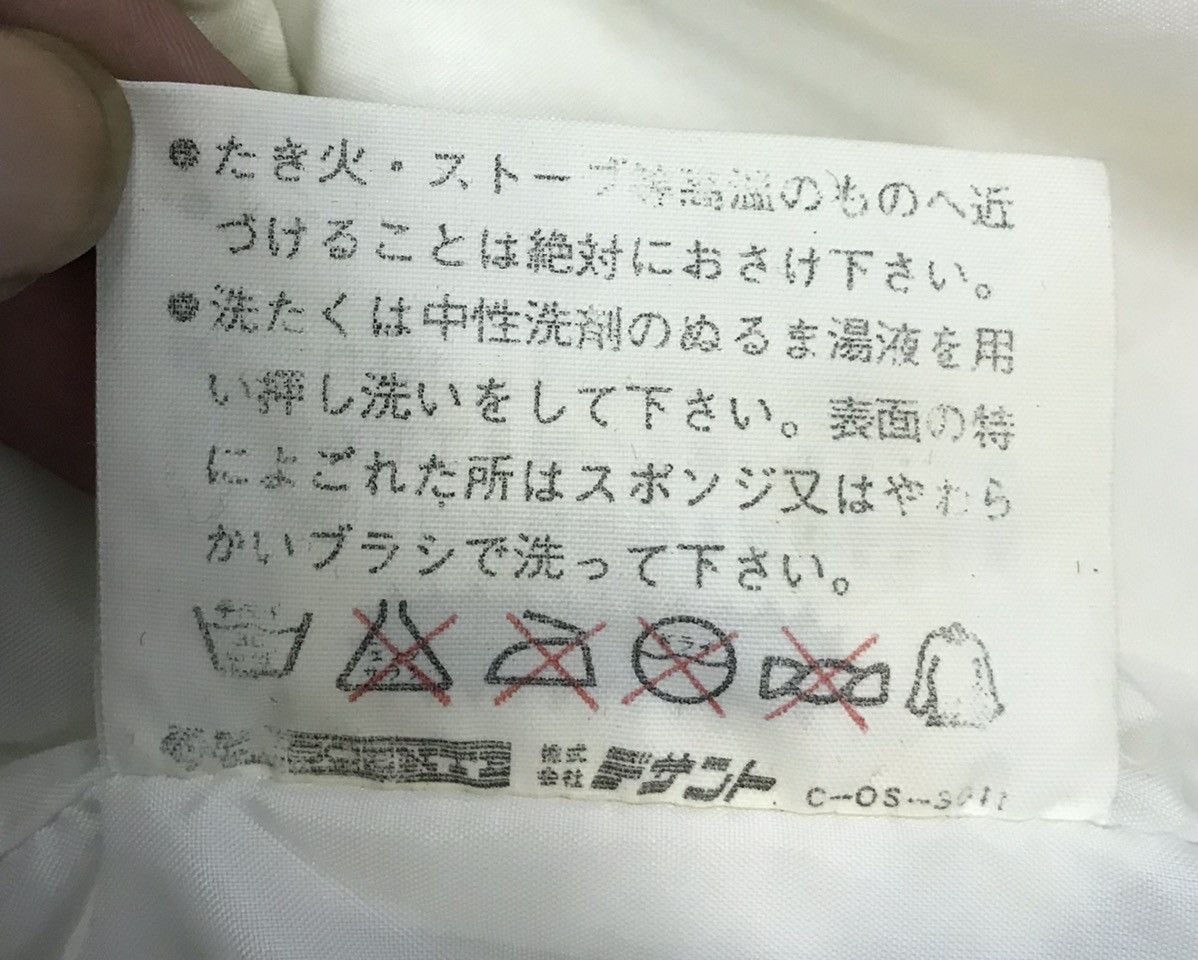 ●たき火・ストーブ等高温のものへ近
づけることは絶対におさけ下さい。
●洗たくは中性洗剤のぬるま湯液を用
い押し洗いをして下さい。表面の特
によごれた所はスポンジ又はやわら
かいブラシで洗って下さい。
株式会社 デサント C-OS-3011